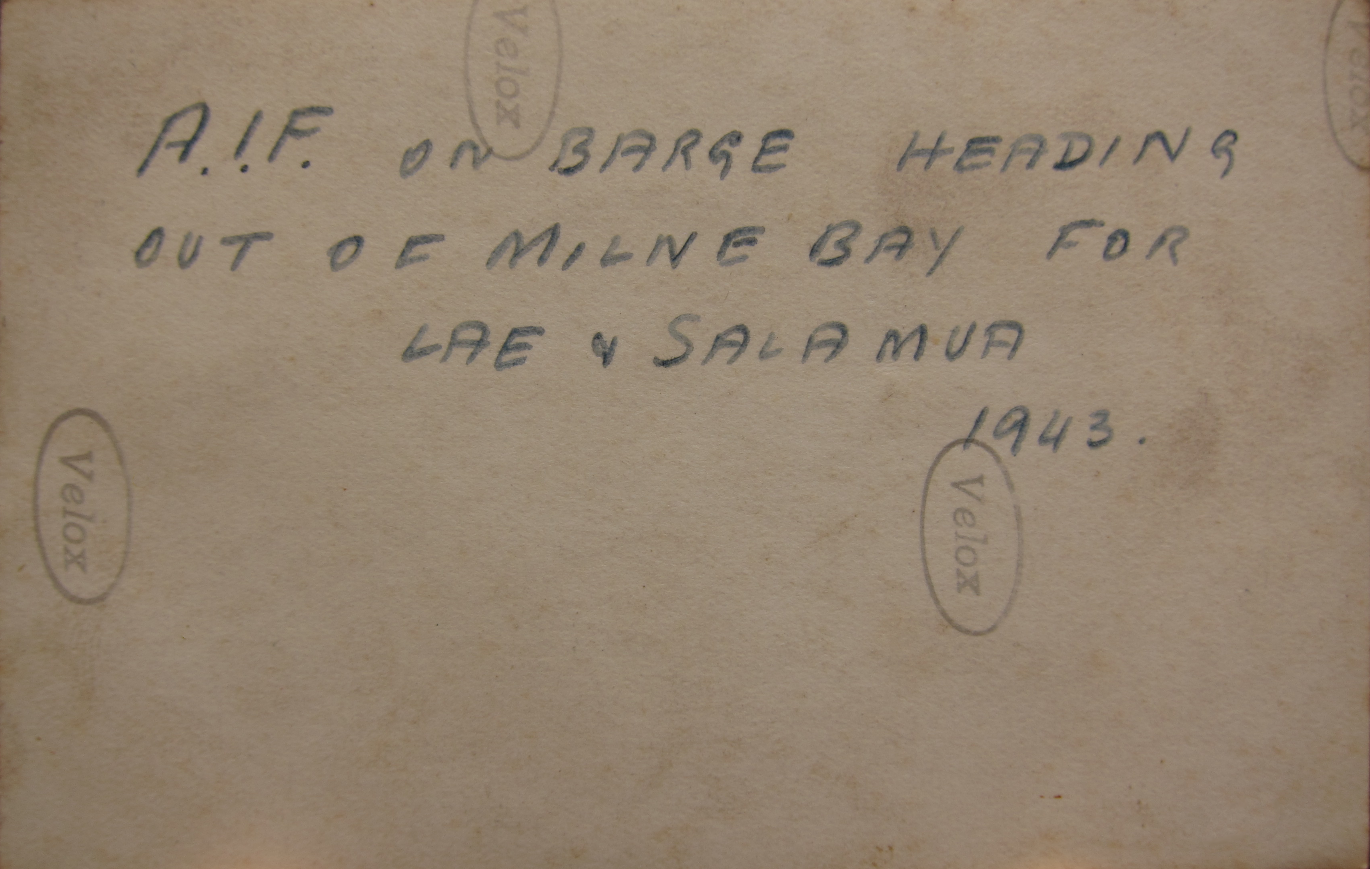 Velox
Velox
A.I.F. ON BARGE HEADING
OUT OF MILNE BAY FOR
LAE & SALAMUA
1943.
Velox
Velox